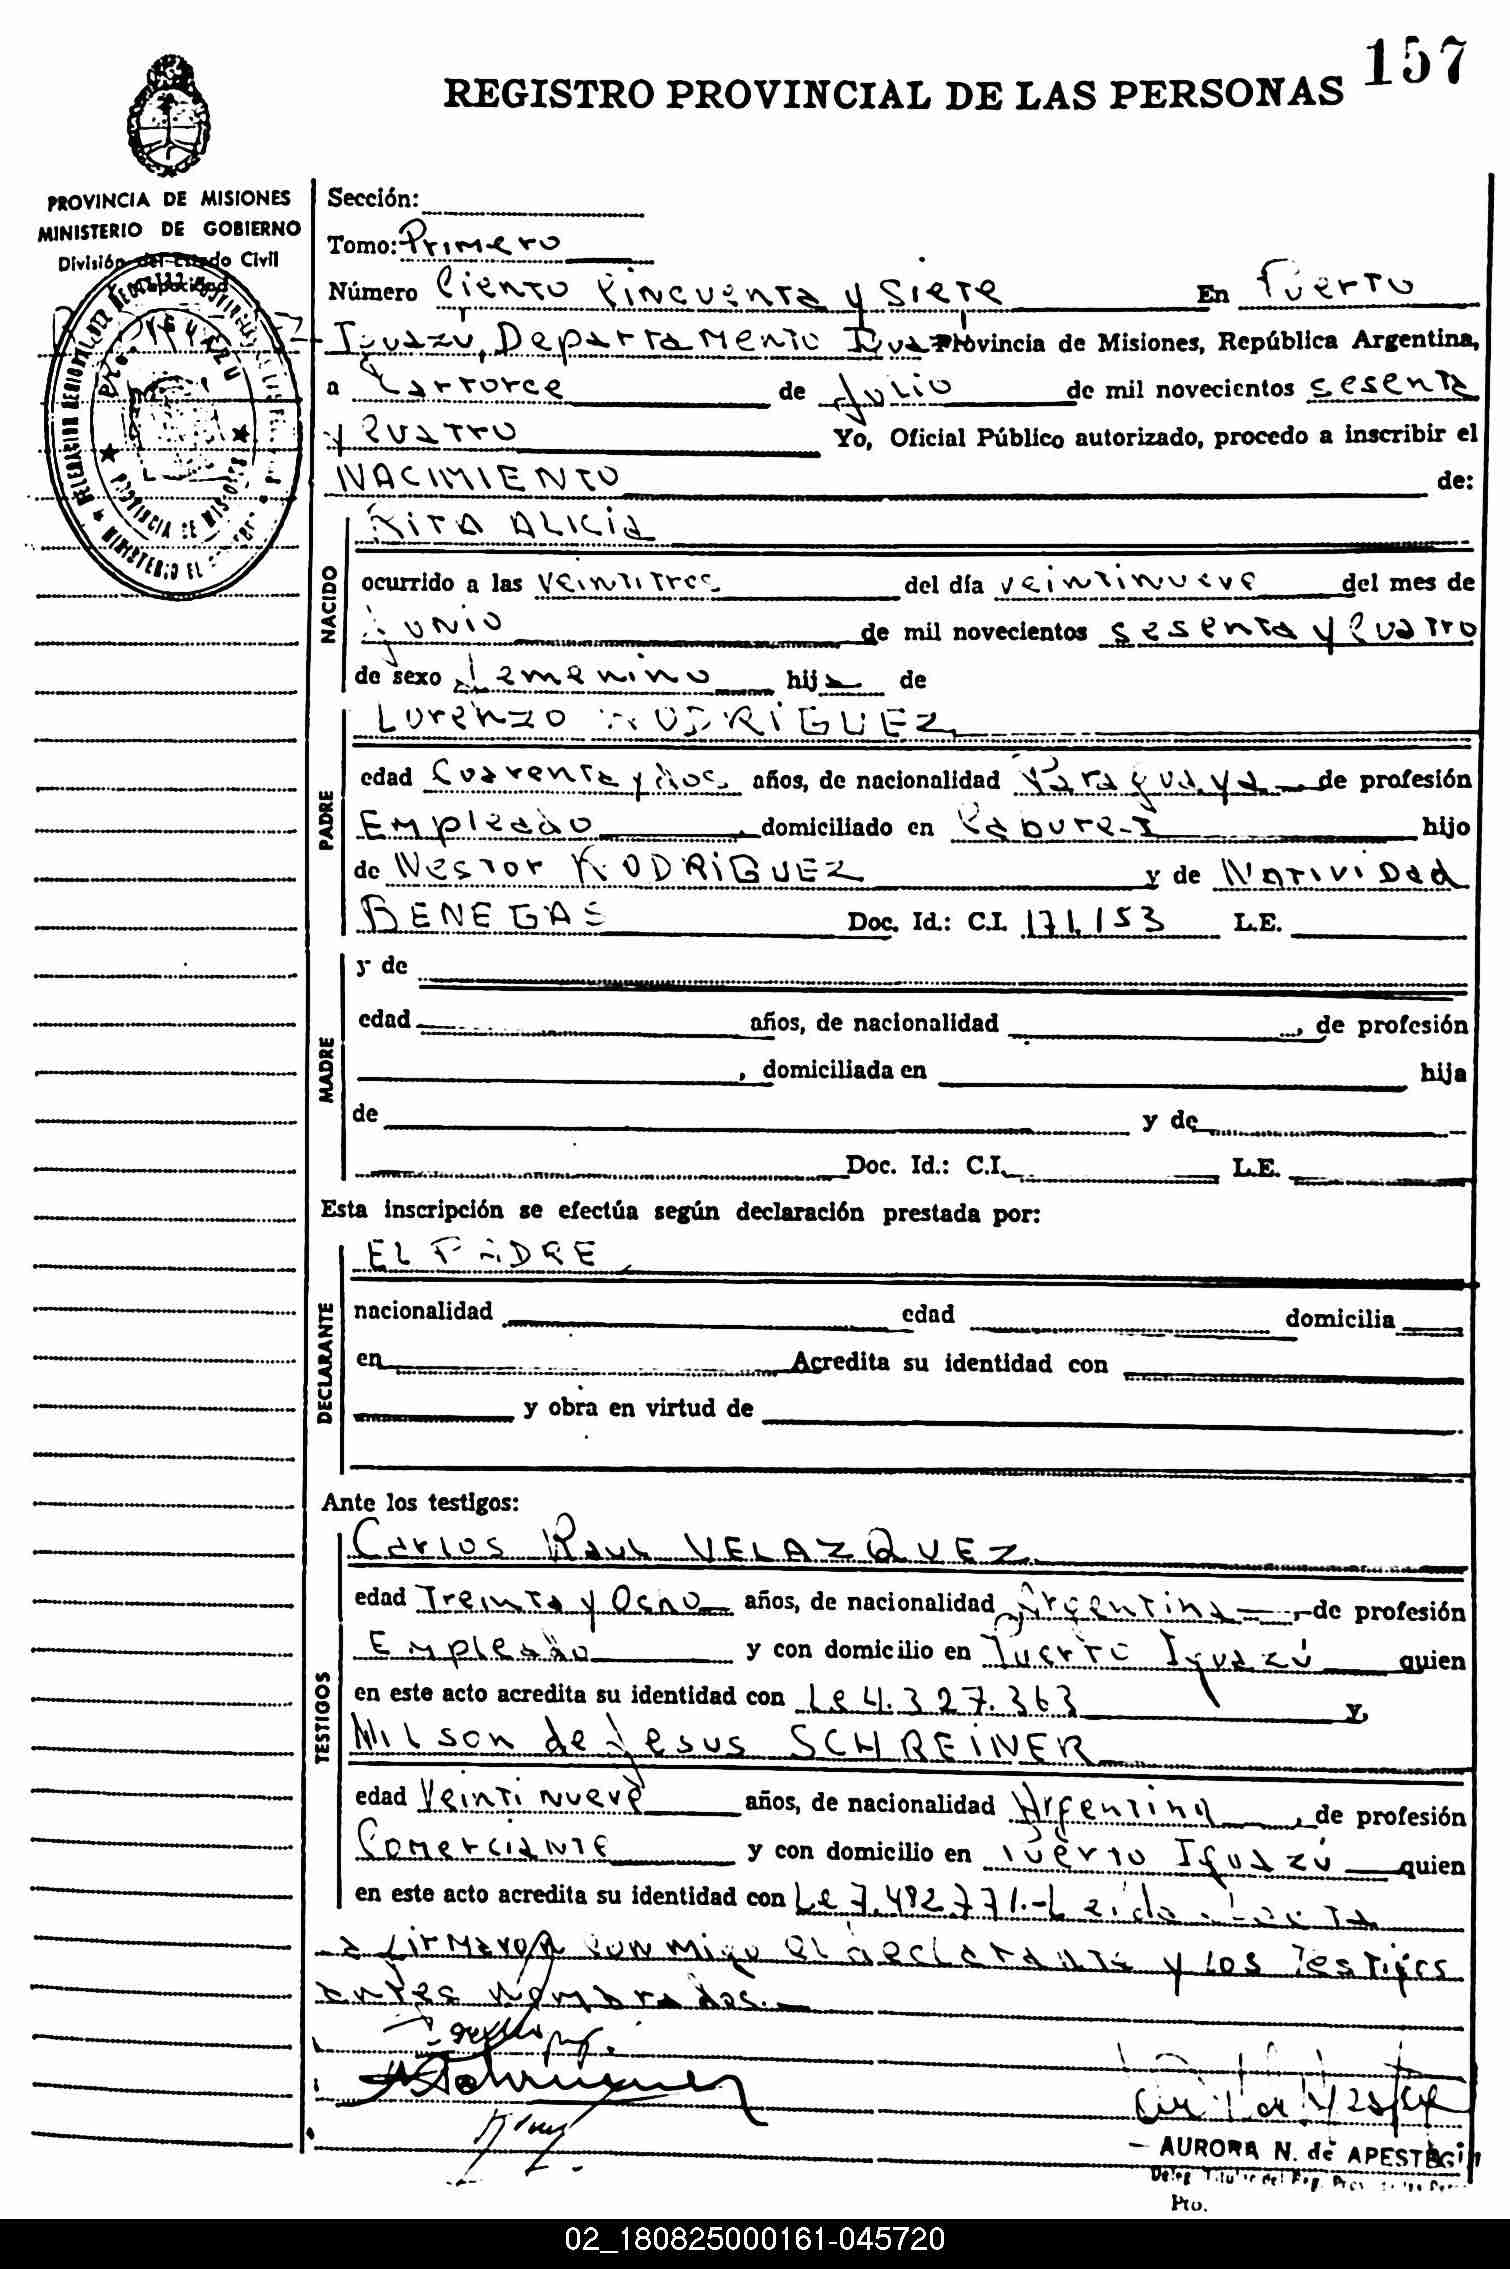 157
REGISTRO PROVINCIAL DE LAS PERSONAS
PROVINCIA DE MISIONES
MINISTERIO DE GOBIERNO
División del Estado Civil
Sección:
Tomo: Primero
Número Ciento Cincuenta y Siete En Puerto
Iguazú, Departamento Iguazú Provincia de Misiones, República Argentina,
a Catrorce de Julio de mil novecientos sesenta
y Cuatro Yo, Oficial Público autorizado, procedo a inscribir el
NACIMIENTO de:
NACIDO
Rita ALICIA
ocurrido a las veintitres del día veintinueve del mes de
junio de mil novecientos sesenta y Cuatro
de sexo femenino hija de
PADRE
Lorenzo RODRIGUEZ
edad Cuarenta y dos años, de nacionalidad Paraguaya de profesión
Empleado, domiciliado en Cabure-I hijo
de Nestor RODRIGUEZ y de Natividad
BENEGAS Doc. Id.: C.I. 171.153 L.E.
MADRE
y de
edad años, de nacionalidad , de profesión
, domiciliada en hija
de y de
Doc. Id.: C.I. L.E.
Esta inscripción se efectúa según declaración prestada por:
DECLARANTE
EL PADRE
nacionalidad edad domicilia
en Acredita su identidad con
y obra en virtud de
Ante los testigos:
TESTIGOS
Carlos Raul VELAZQUEZ
edad Treinta y Ocho años, de nacionalidad Argentina de profesión
Empleado y con domicilio en Puerto Iguazú quien
en este acto acredita su identidad con Le 4.327.363 y,
Nilson de Jesus SCHREINER
edad Veinti nueve años, de nacionalidad Argentina, de profesión
Comerciante y con domicilio en Puerto Iguazú quien
en este acto acredita su identidad con Le 7.492.771.- Leida el acta
la firmaron conmigo el declarante y los Testigos
antes nombrados.-
- AURORA N. de APESTEGUI
Pto.
02_180825000161-045720